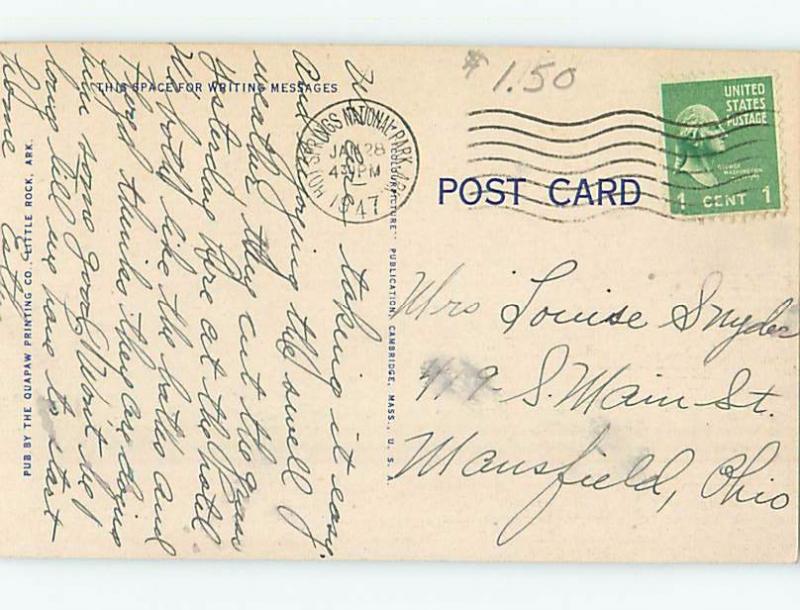 $1.50
THIS SPACE FOR WRITING MESSAGES
HOT SPRINGS NATIONAL PARK, ARK.
JAN 28
4 PM
1947
UNITED
STATES
POSTAGE
GEORGE
WASHINGTON
1 CENT 1
POST CARD
PUB BY THE QUAPAW PRINTING CO., LITTLE ROCK, ARK.
"COLOURPICTURE" PUBLICATION, CAMBRIDGE, MASS., U. S. A.
taking it easy.
and enjoying the swell
weather, they cut the grass
yesterday here at the hotel
We both like the baths and
Floyd thinks they are doing
him some good. Won't be
long till we have to start
home
Mrs Louise Snyder
419 S. Main St.
Mansfield, Ohio